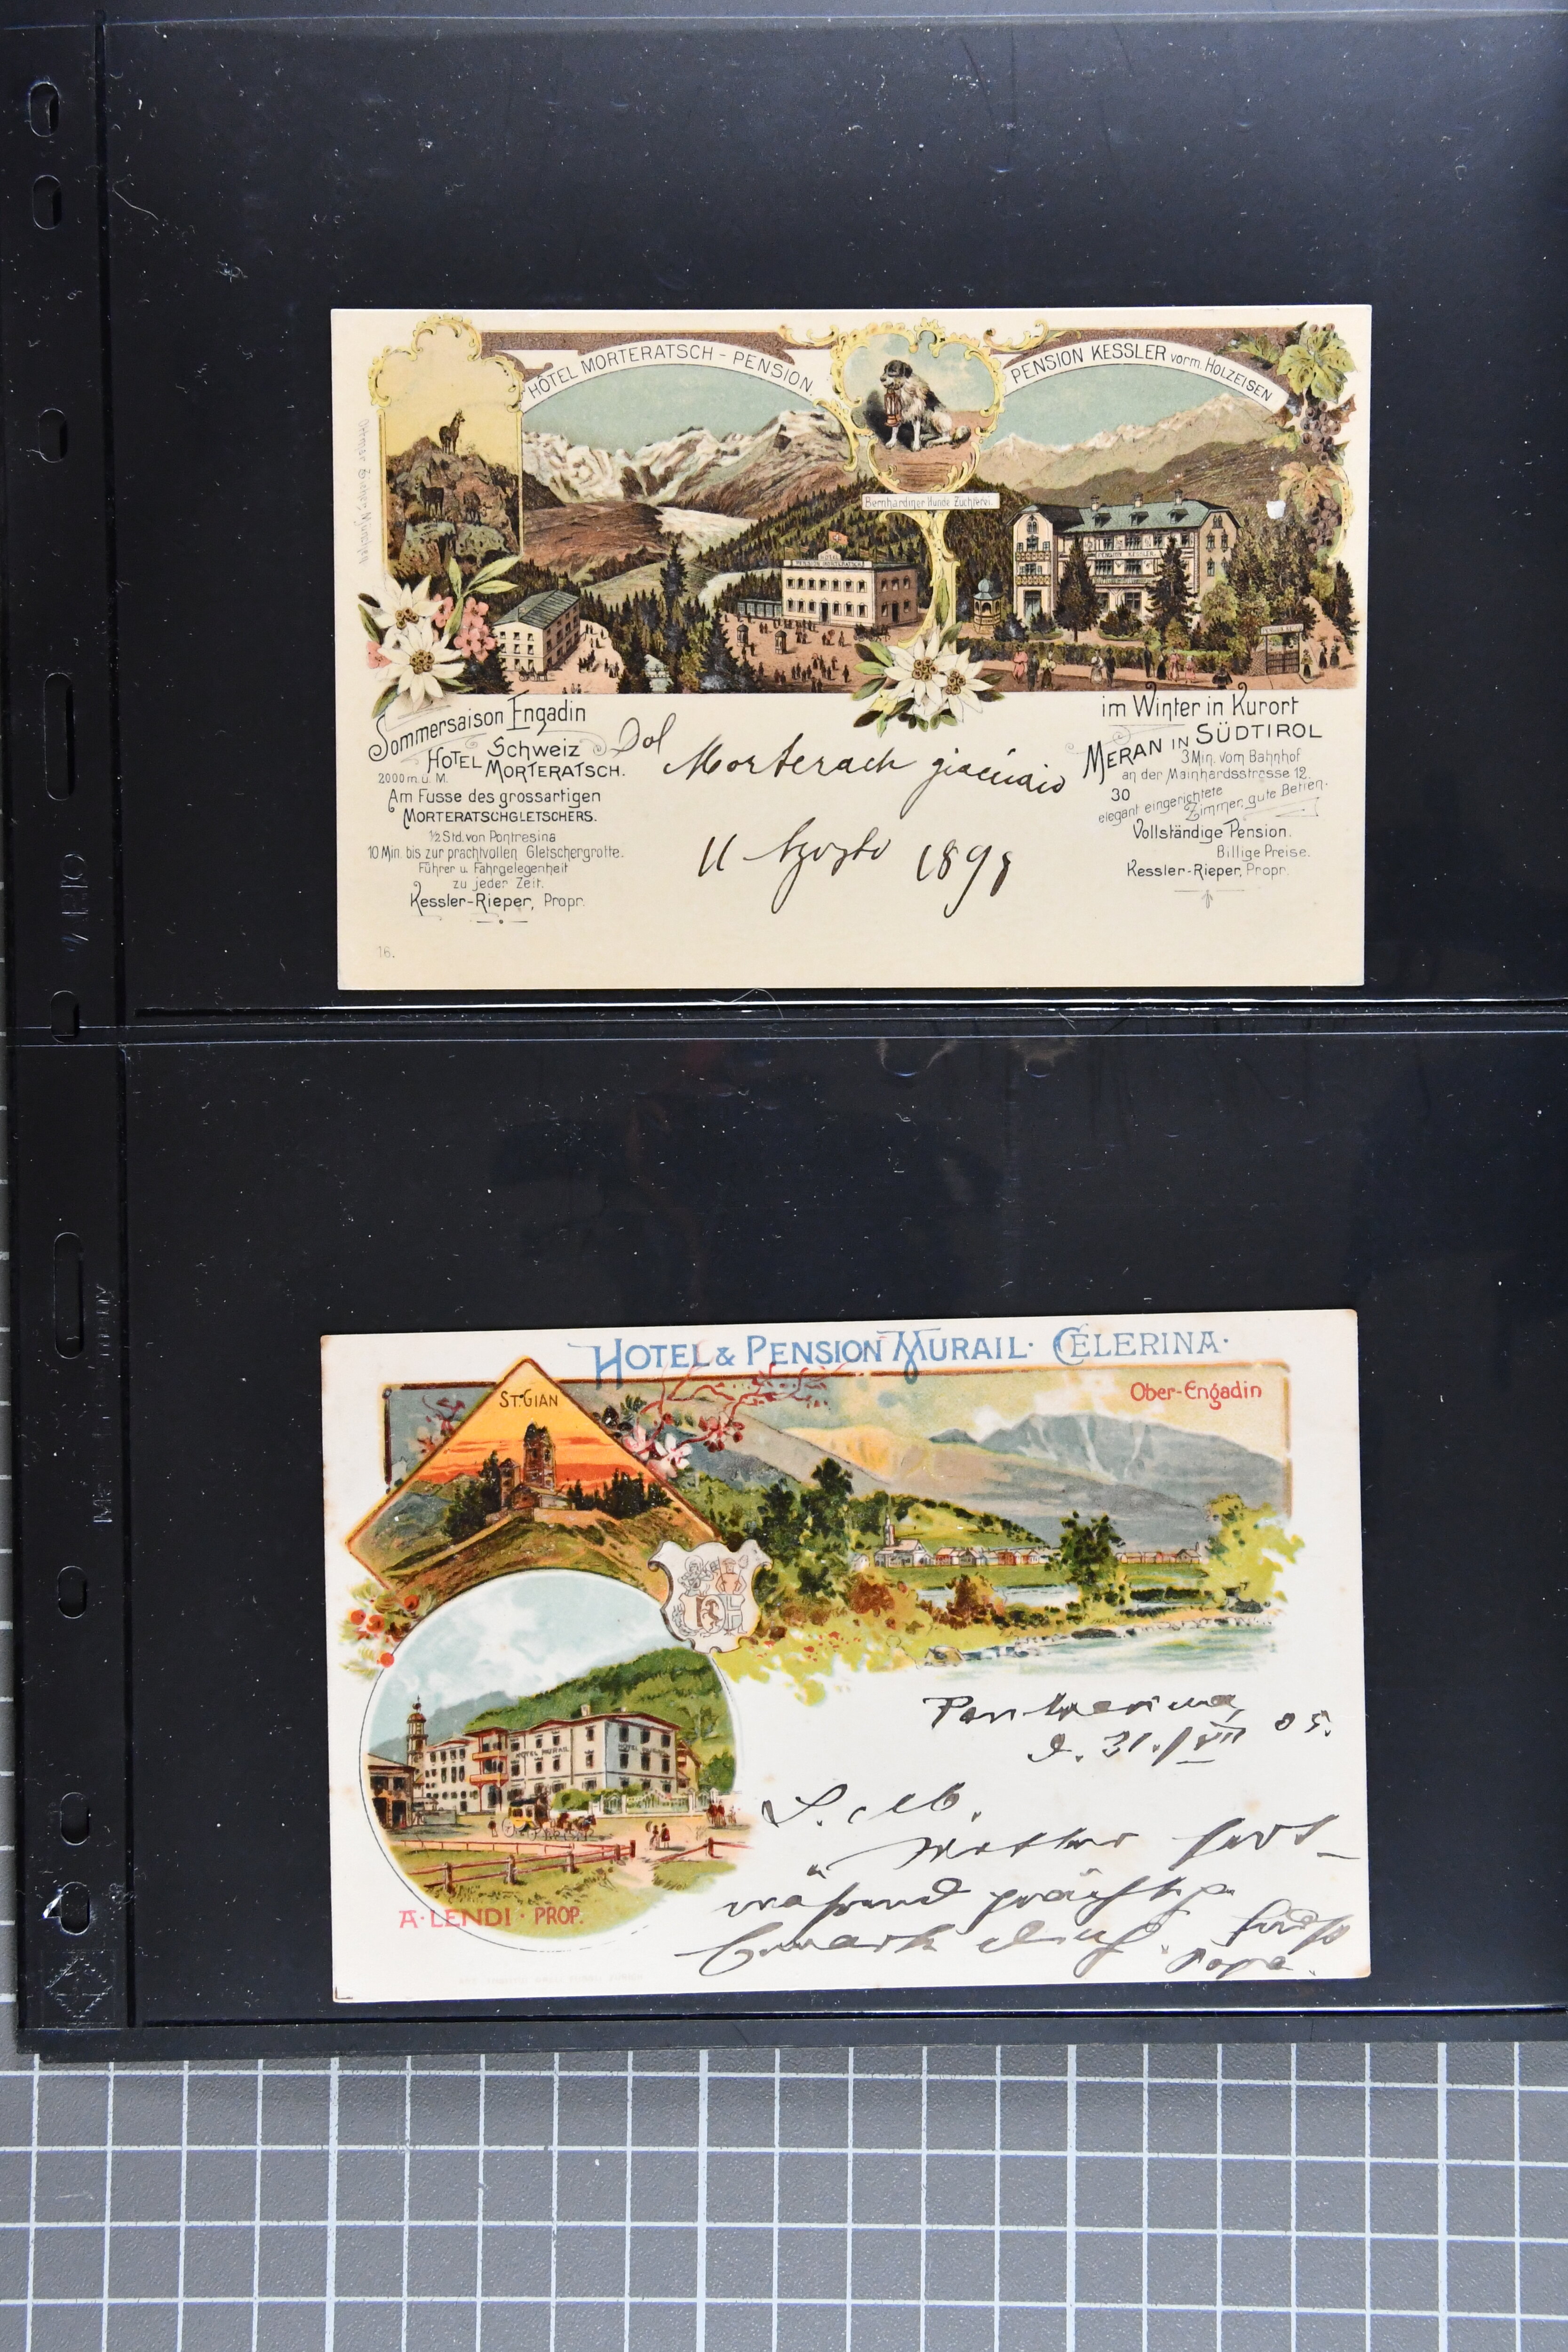 HÔTEL MORTERATSCH - PENSION.
Bernhardiner Hunde Züchterei.
PENSION KESSLER vorm. HOLZEISEN
PENSION KESSLER
Sommersaison Engadin
Schweiz
HOTEL MORTERATSCH.
2000 m. ü. M.
Am Fusse des grossartigen
MORTERATSCHGLETSCHERS.
½ Std. von Pontresina
10 Min. bis zur prachtvollen Gletschergrotte.
Führer u. Fahrgelegenheit
zu jeder Zeit.
Kessler-Rieper, Propr.
16.
Dal
Morterach giacciaio
11 Agosto 1898
im Winter in Kurort
MERAN IN SÜDTIROL
3 Min. vom Bahnhof
an der Mainhardsstrasse 12.
30
elegant eingerichtete
Zimmer, gute Betten.
Vollständige Pension.
Billige Preise.
Kessler-Rieper, Propr.
HOTEL & PENSION MURAIL · CELERINA ·
ST. GIAN
Ober-Engadin
HOTEL MURAIL
A · LENDI · PROP.
d. 31./VII 05.
während prächtig.
Papa.